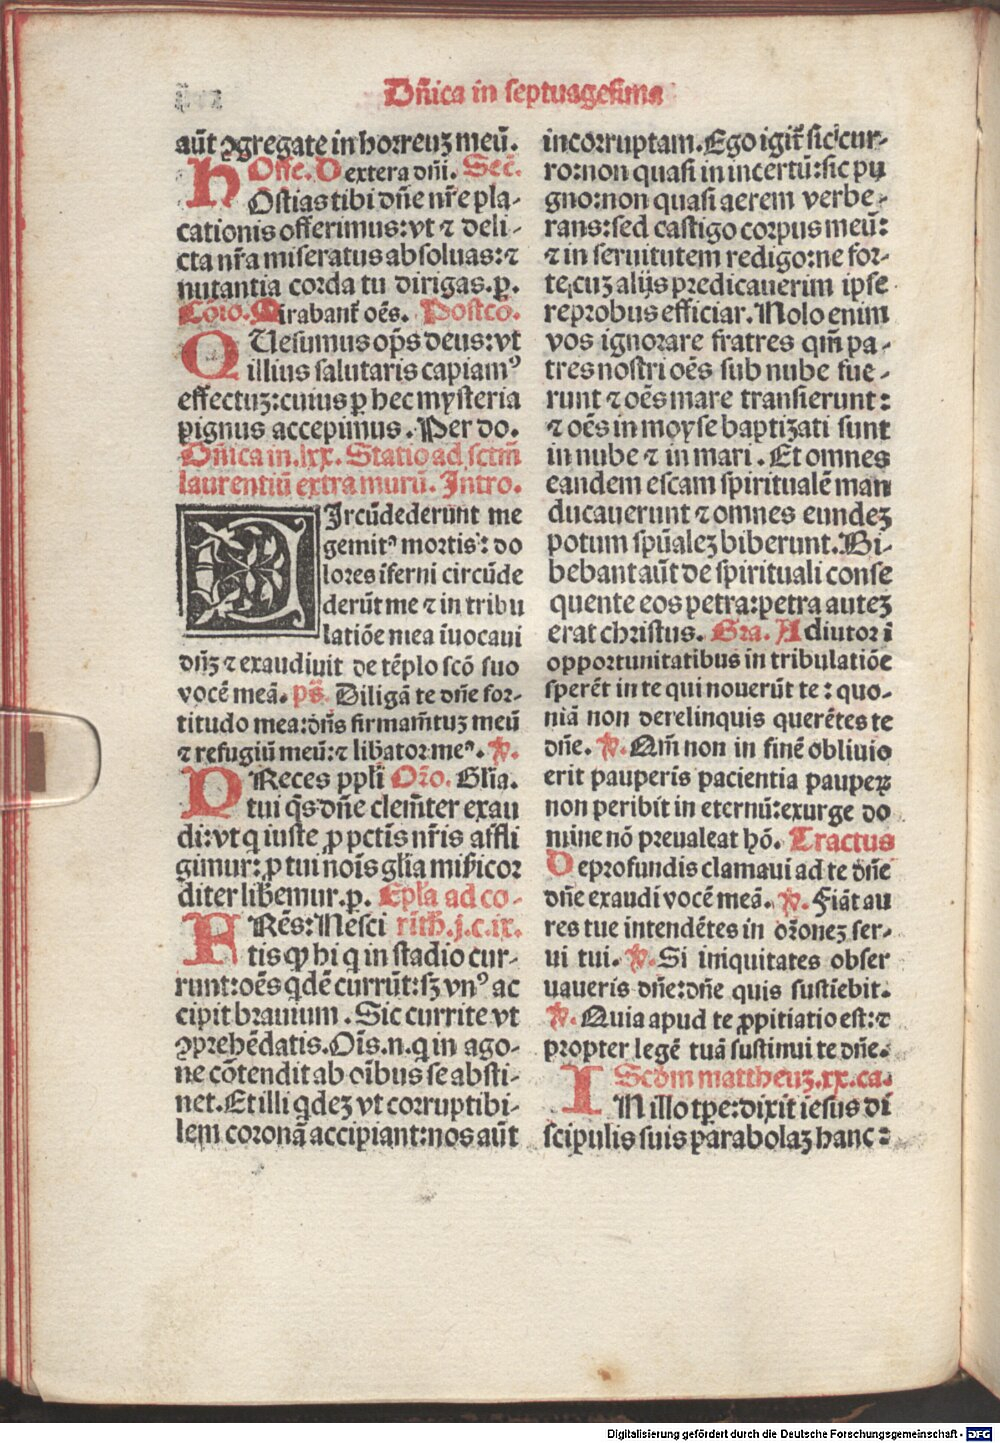 Dn̄ica in septuagesima
aūt ꝯgregate in horreuꝫ meū.
Offe. Dextera dn̄i. Sec̄.
HOstias tibi dn̄e nr̄e pla-
cationis offerimus: vt ⁊ deli-
cta nr̄a miseratus absoluas: ⁊
nutantia corda tu dirigas. p.
Cōio. Mirabant᷑ oēs. Postcō.
QUesumus op̄s deus: vt
illius salutaris capiamꝰ
effectuꝫ: cuius ꝑ hec mysteria
pignus accepimus. Per do.
Dn̄ica in .lxx. Statio ad sctm̄
laurentiū extra murū. Intro.
CIrcūdederunt me
gemitꝰ mortis: do
lores īferni circūde
derūt me ⁊ in tribu
latiōe mea īuocaui
dn̄ꝫ ⁊ exaudiuit de tēplo scō suo
vocē meā. ps̄. Diligā te dn̄e for-
titudo mea: dn̄s firmam̄tuꝫ meū
⁊ refugiū meū: ⁊ liƀator meꝰ. ℣.
PReces ppl̄i Or̄o. Gl̄ia.
tui q̄s dn̄e clem̄ter exau
di: vt q iuste ꝓ pctīs nr̄is affli
gimur: ꝓ tui nōis gl̄ia mīsicor
diter liƀemur. p. Epl̄a ad co-
FRēs: Nesci rīth̄. j. c. ix.
tis ꝙ hi q in stadio cur-
runt: oēs qdē currūt: sꝫ vnꝰ ac
cipit brauium. Sic currite vt
ꝯprehēdatis. Oīs .n. q in ago-
ne cōtendit ab oībus se absti-
net. Et illi qdeꝫ vt corruptibi-
lem coronā accipiant: nos aūt
incorruptam. Ego igit᷑ sic cur-
ro: non quasi in incertū: sic pu
gno: non quasi aerem verbe-
rans: sed castigo corpus meū:
⁊ in seruitutem redigo: ne for-
te, cuꝫ alijs predicauerim ipse
reprobus efficiar. Nolo enim
vos ignorare fratres qm̄ pa-
tres nostri oēs sub nube fue-
runt ⁊ oēs mare transierunt:
⁊ oēs in moyse baptizati sunt
in nube ⁊ in mari. Et omnes
eandem escam spiritualē man
ducauerunt ⁊ omnes eundeꝫ
potum spūaleꝫ biberunt. Bi-
bebant aūt de spirituali conse
quente eos petra: petra auteꝫ
erat christus. Gra. Adiutor i
opportunitatibus in tribulatiōe
sperēt in te qui nouerūt te: quo-
niā non derelinquis querētes te
dn̄e. ℣. Qm̄ non in finē obliuio
erit pauperis pacientia pauperꝝ
non peribit in eternū: exurge do
mine nō preualeat hō. Tractus
De profundis clamaui ad te dn̄e
dn̄e exaudi vocē meā. ℣. Fiāt au
res tue intendētes in or̄oneꝫ ser-
ui tui. ℣. Si iniquitates obser
uaueris dn̄e: dn̄e quis sustiebit.
℣. Quia apud te ꝓpitiatio est: ⁊
propter legē tuā sustinui te dn̄e.
Scd̄m mattheuꝫ. xx. ca.
IN illo tꝑe: dixit iesus di
scipulis suis parabolaꝫ hanc:
Digitalisierung gefördert durch die Deutsche Forschungsgemeinschaft - DFG